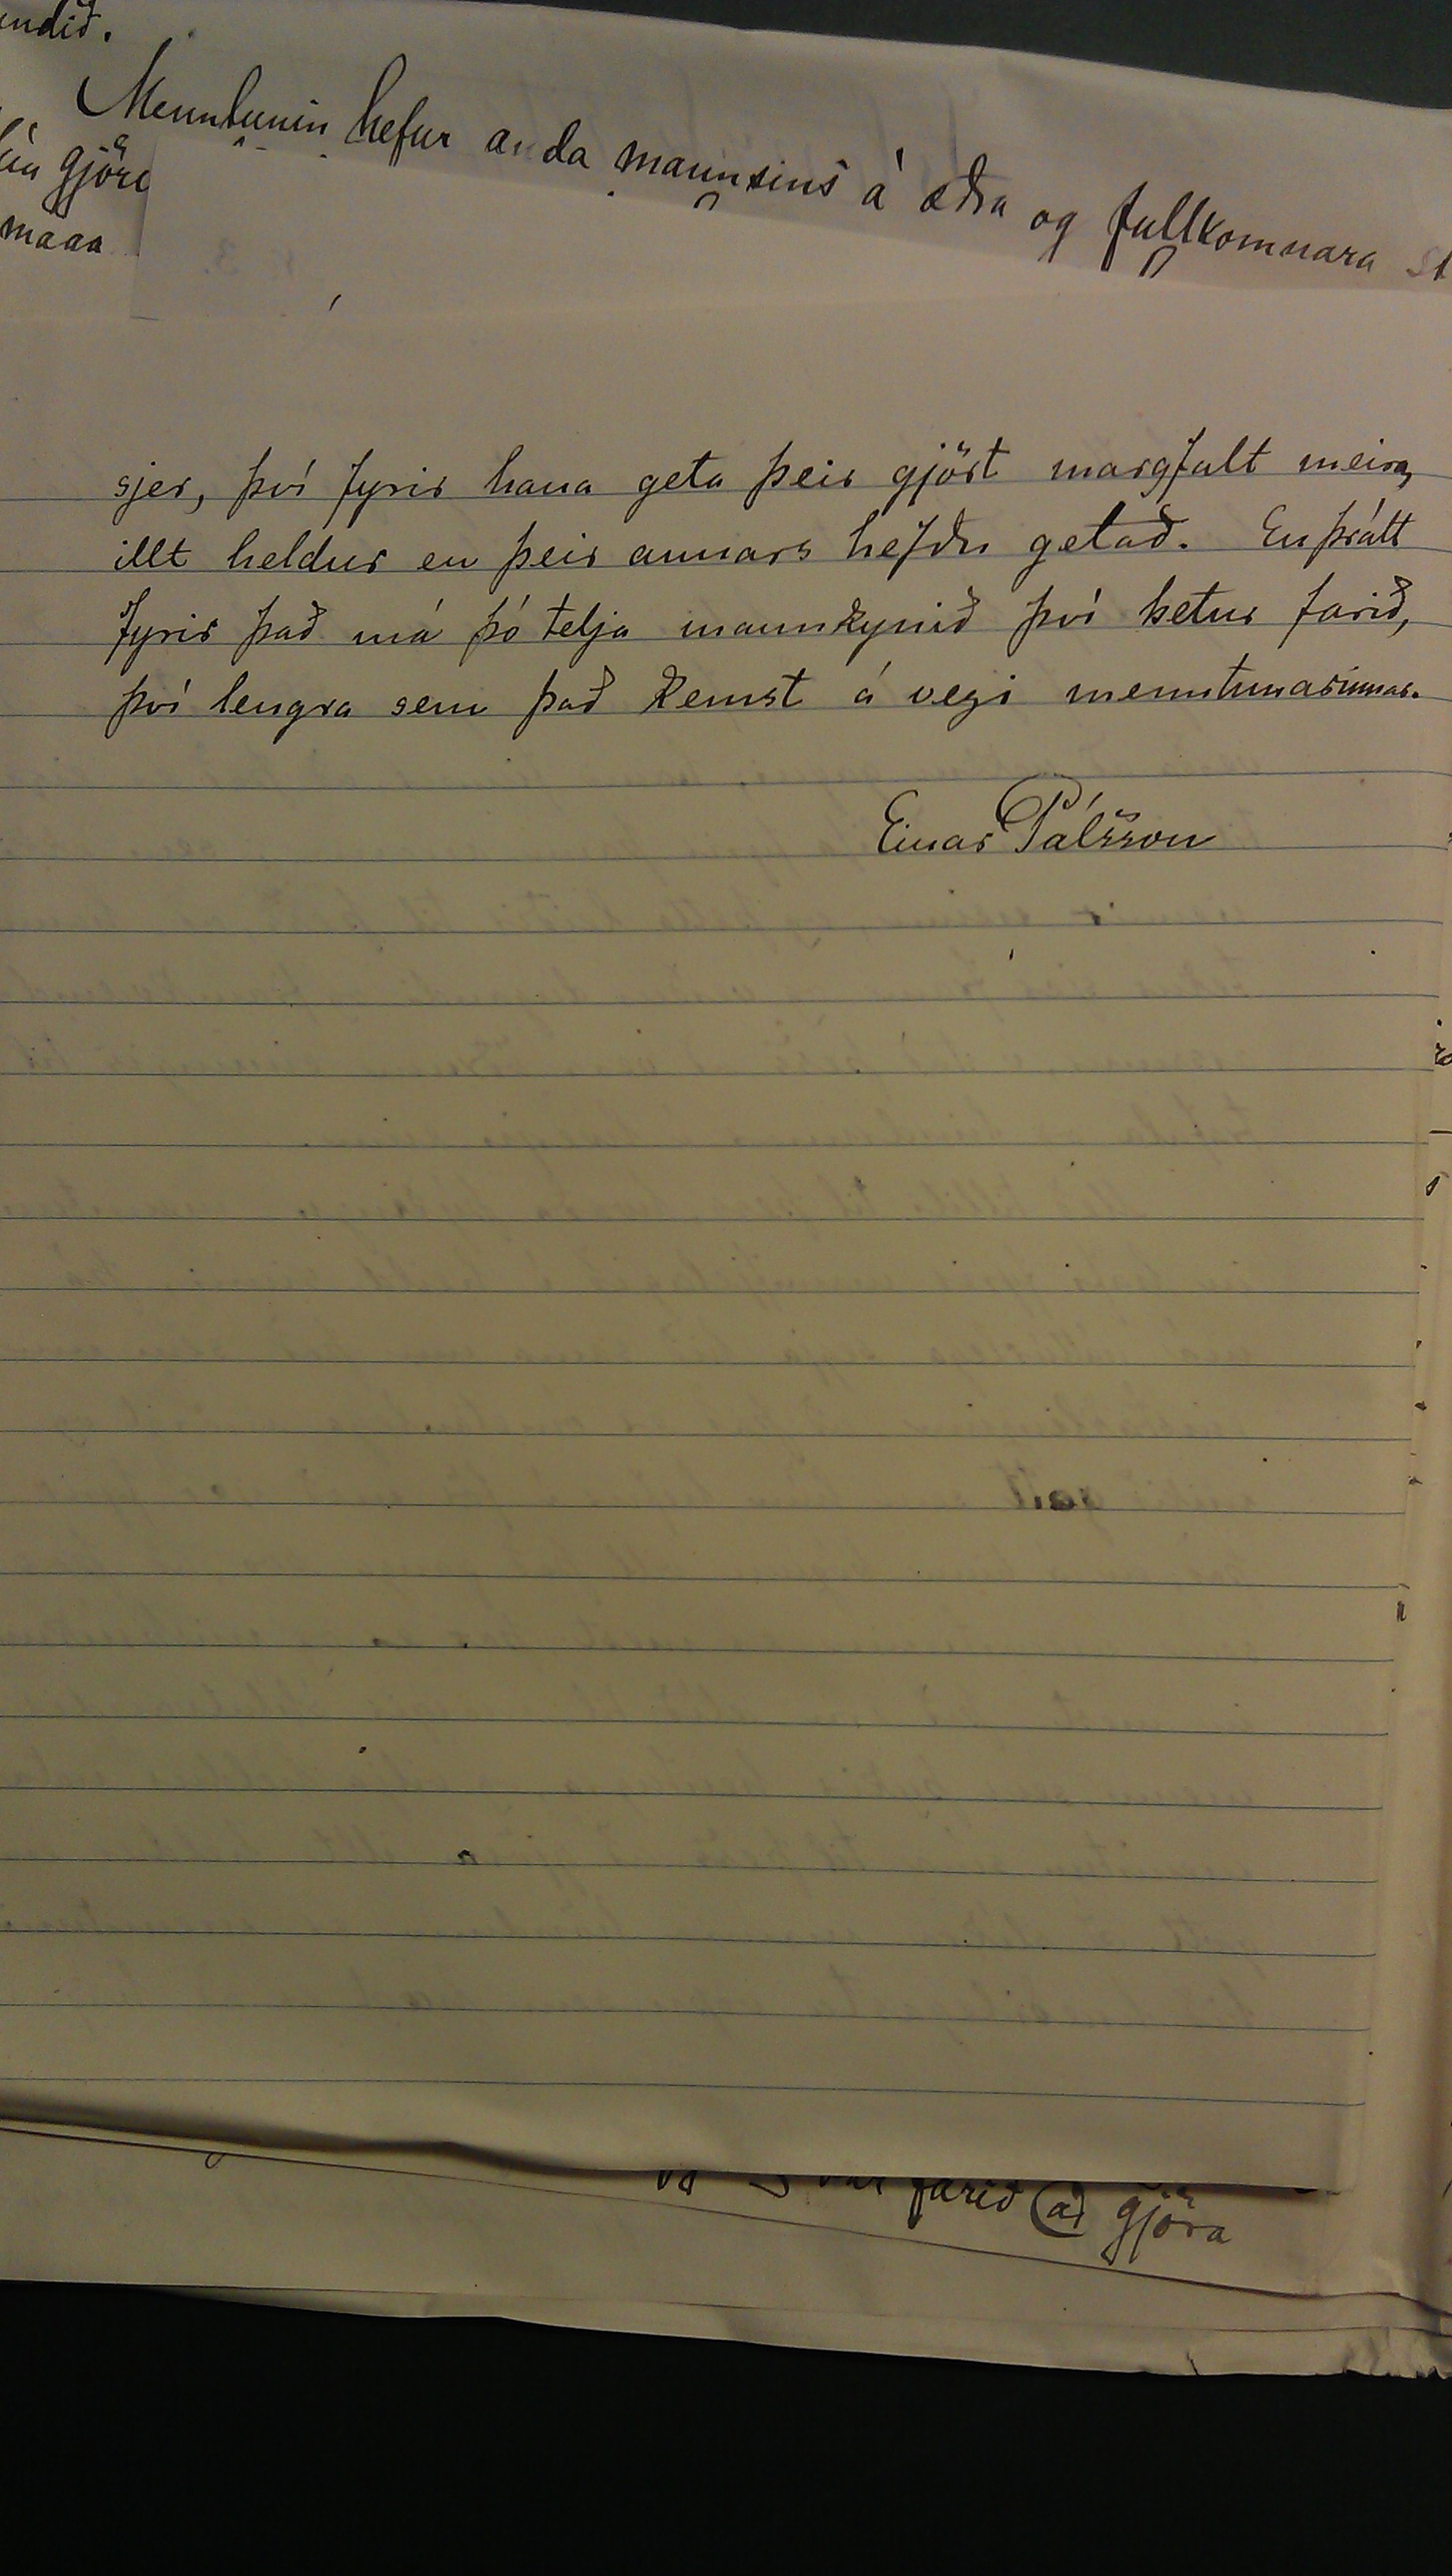 Menntunin hefur anda mannsins á æðra og fullkomnara
gjöra
sjer, því fyrir hana geta þeir gjört margfalt meira
illt heldur en þeir annars hefðu getað. En þrátt
fyrir það má þó telja mannkynið því betur farið,
því lengra sem það kemst á vegi menntunarinnar.
Einar Pálsson
farið að gjöra